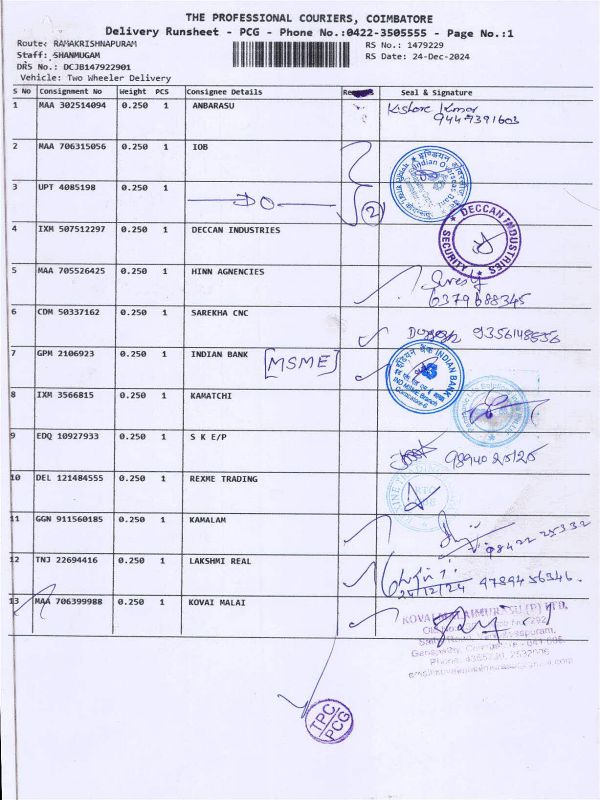 THE PROFESSIONAL COURIERS, COIMBATORE
Delivery Runsheet - PCG - Phone No.:0422-3505555 - Page No.:1
Route: RAMAKRISHNAPURAM
RS No.: 1479229
Staff: SHANMUGAM
RS Date: 24-Dec-2024
DRS No.: DCJB147922901
Vehicle: Two Wheeler Delivery
S No Consignment No Weight PCS Consignee Details Seal & Signature
1 MAA 302514094 0.250 1 ANBARASU Kishore Kumar
9447391603
2 MAA 706315056 0.250 1 IOB
Indian Overseas Bank
3 UPT 4085198 0.250 1 DO 2
4 IXM 507512297 0.250 1 DECCAN INDUSTRIES DECCAN INDUSTRIES SECURITY
5 MAA 705526425 0.250 1 HINN AGNENCIES
6379688345
6 CDM 50337162 0.250 1 SAREKHA CNC
7 GPM 2106923 0.250 1 INDIAN BANK [MSME] इंडियन बैंक INDIAN BANK
Coimbatore-6
8 IXM 3566815 0.250 1 KAMATCHI
9 EDQ 10927933 0.250 1 S K E/P
10 DEL 121484555 0.250 1 REXME TRADING
11 GGN 911560185 0.250 1 KAMALAM
98422 25332
12 TNJ 22694416 0.250 1 LAKSHMI REAL
24/12/24 9789456346.
13 MAA 706399988 0.250 1 KOVAI MALAI KOVAI MALAIMURASU (P) LTD.
TPC
PCG